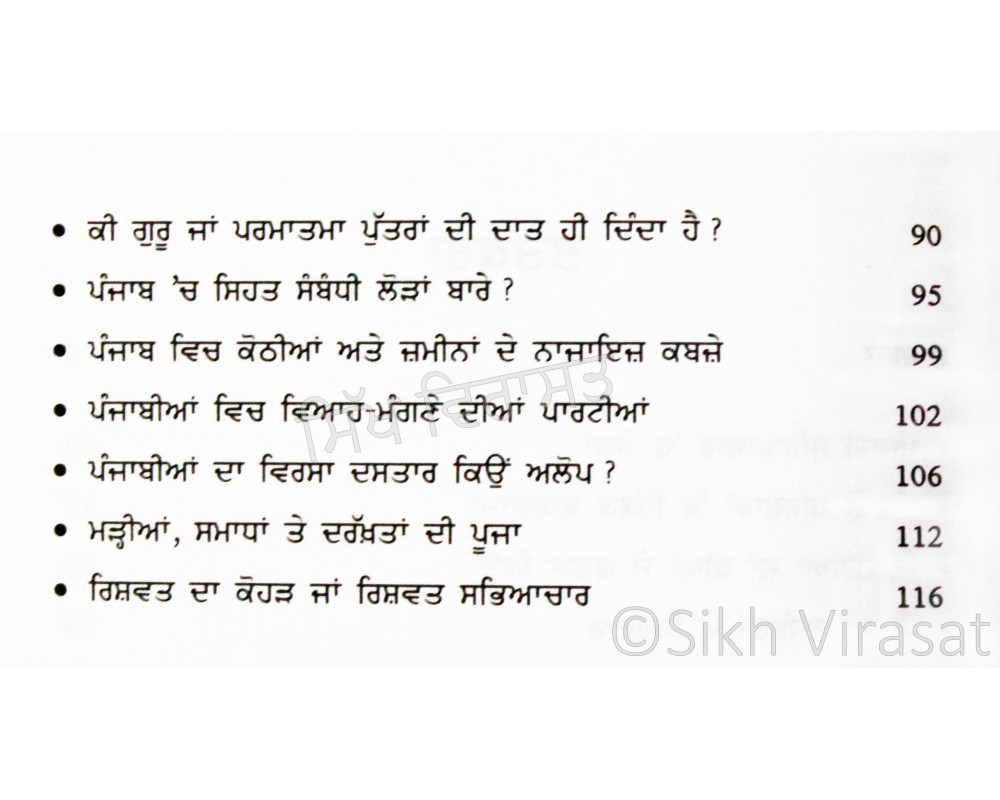 • ਕੀ ਗੁਰੂ ਜਾਂ ਪਰਮਾਤਮਾ ਪੁੱਤਰਾਂ ਦੀ ਦਾਤ ਹੀ ਦਿੰਦਾ ਹੈ ? 90
• ਪੰਜਾਬ ’ਚ ਸਿਹਤ ਸੰਬੰਧੀ ਲੋੜਾਂ ਬਾਰੇ ? 95
• ਪੰਜਾਬ ਵਿਚ ਕੋਠੀਆਂ ਅਤੇ ਜ਼ਮੀਨਾਂ ਦੇ ਨਾਜਾਇਜ਼ ਕਬਜ਼ੇ 99
• ਪੰਜਾਬੀਆਂ ਵਿਚ ਵਿਆਹ-ਮੰਗਣੇ ਦੀਆਂ ਪਾਰਟੀਆਂ 102
ਸਿੱਖ ਵਿਰਾਸਤ
• ਪੰਜਾਬੀਆਂ ਦਾ ਵਿਰਸਾ ਦਸਤਾਰ ਕਿਉਂ ਅਲੋਪ ? 106
• ਮੜ੍ਹੀਆਂ, ਸਮਾਧਾਂ ਤੇ ਦਰੱਖ਼ਤਾਂ ਦੀ ਪੂਜਾ 112
• ਰਿਸ਼ਵਤ ਦਾ ਕੋਹੜ ਜਾਂ ਰਿਸ਼ਵਤ ਸਭਿਆਚਾਰ 116
©Sikh Virasat